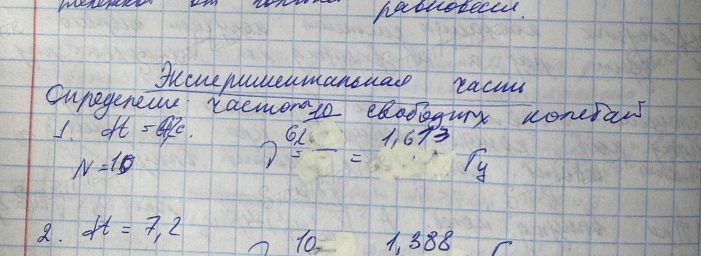 от равновесия.
Экспериментальная часть
Определение частоты свободных колебаний
1. dt = с.
N = 10
ν = = 1,613 Гц
2. dt = 7,2
10 1,388